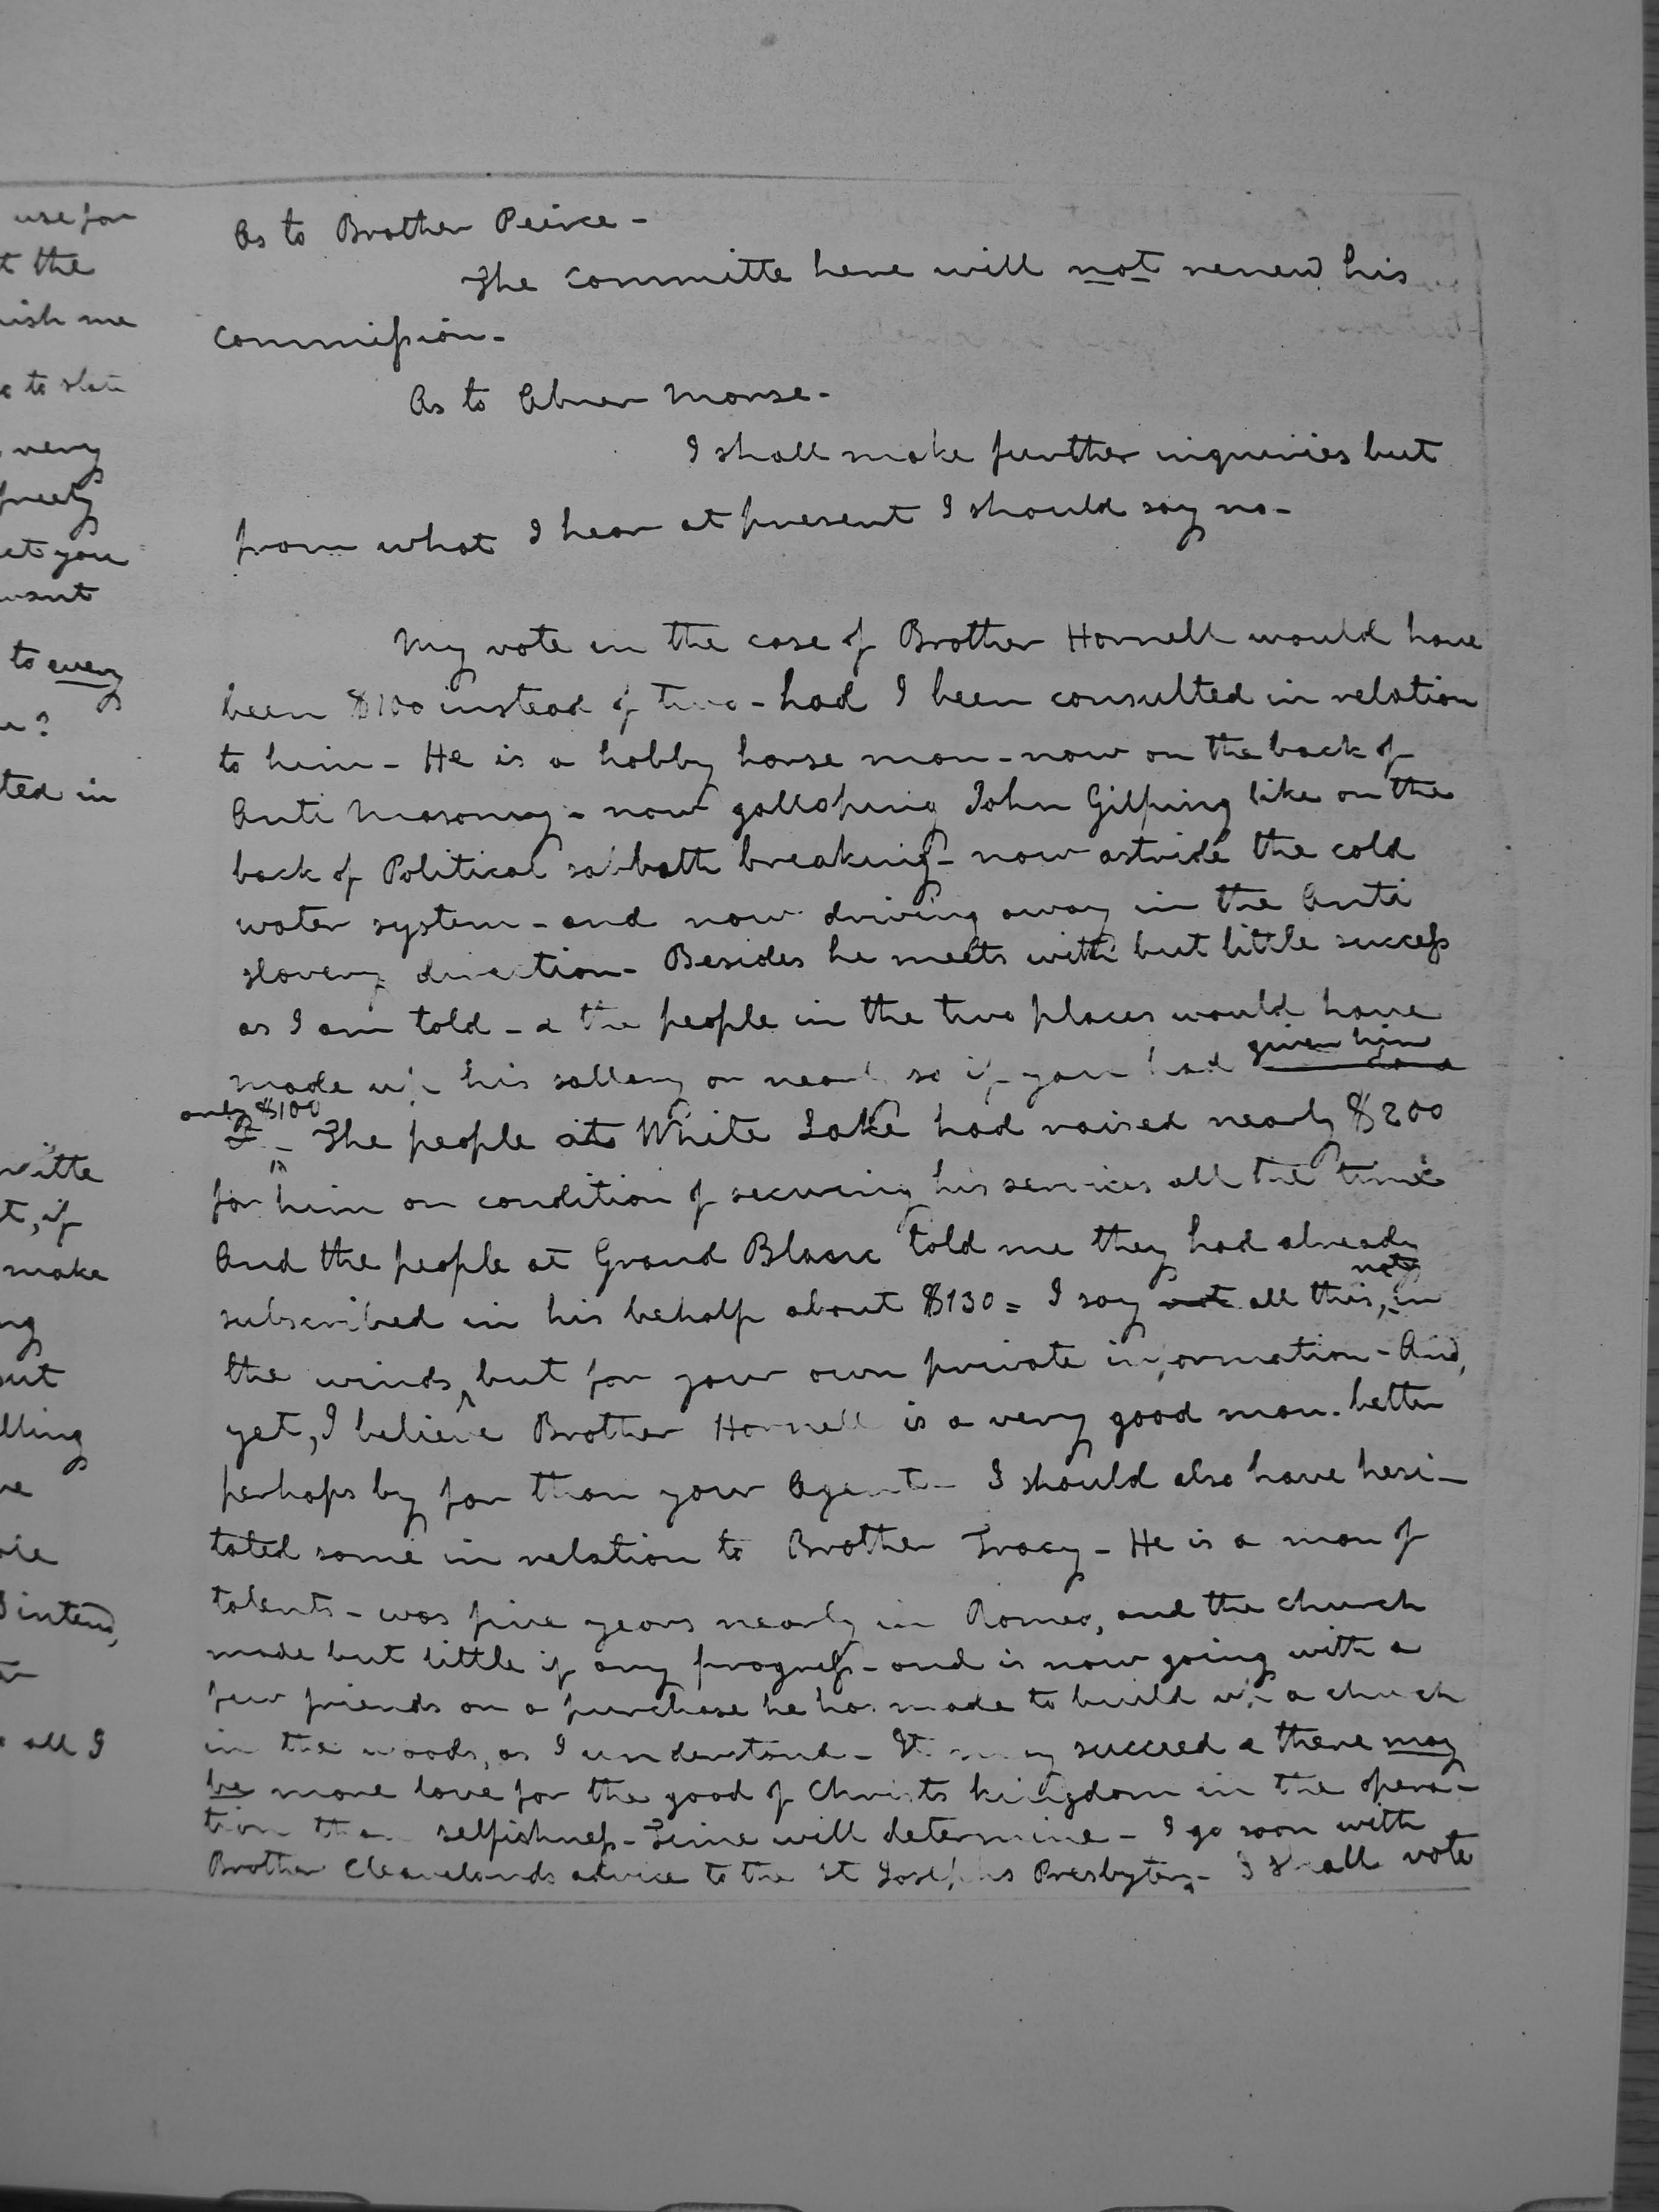 use for
t the
ish me
very
freely
et you
to every
?
ted in
mitte
t, if
make
ng
out
lling
intend,
all I
As to Brother Peirce -
The Committe here will not renew his
commission -
As to Abner Morse -
I shall make further inquiries but
from what I hear at present I should say no -
My vote in the case of Brother Hornell would have
been $100 instead of two - had I been consulted in relation
to him - He is a hobby horse man - now on the back of
Anti Masonry - now galloping John Gilping like on the
back of Political sabbath breaking - now astride the cold
water system - and now driving away in the Anti
slavery direction - Besides he meets with but little success
as I am told - & the people in the two places would have
made up his sallery or nearly so if you had given him
only $100
- The people at White Lake had raised nearly $200
for him on condition of securing his services all the time
And the people at Grand Blanc told me they had already
subscribed in his behalf about $130 = I say not all this, not in
the winds, but for your own private information - And,
yet, I believe Brother Hornell is a very good man. better
perhaps by far than your Agent - I should also have hesi-
tated some in relation to Brother Tracy - He is a man of
talents - was five years nearly in Romeo, and the church
made but little if any progress - and is now going with a
few friends on a purchase he has made to build up a church
in the woods, as I understand - It may succeed & there may
be more love for the good of Christs kingdom in the opera-
tion than selfishness - Time will determine - I go soon with
Brother Cleavelands advice to the St Josephs Presbytery - I shall vote